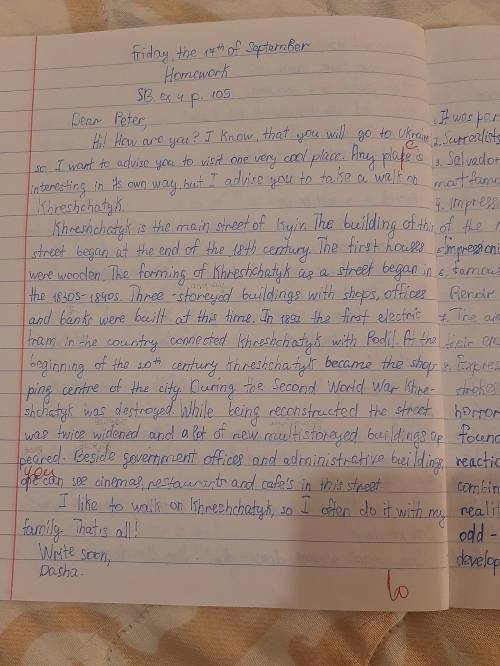 Friday, the 17th of September
Homework
SB. ex 4 p. 105
Dear Peter,
Hi! How are you? I know, that you will go to Ukraine,
so I want to advise you to visit one very cool place. Any place is
interesting in its own way but I advise you to take a walk on
Khreshchatyk.
Khreshchatyk is the main street of Kyiv. The building of this
street began at the end of the 18th century. The first houses
were wooden. The forming of Khreshchatyk as a street began in
the 1830s-1840s. Three-storeyed buildings with shops, offices
and banks were built at this time. In 1892 the first electric
tram in the country connected Khreshchatyk with Podil. At the
beginning of the 20th century Khreshchatyk became the shop
ping centre of the city. During the Second World War Khre-
shchatyk was destroyed. While being reconstructed the street
was twice widened and a lot of new multistoreyed buildings ap
peared. Beside government offices and administrative building,
you
one can see cinemas, restaurants and cafe's in this street.
I like to walk on Khreshchatyk, so I often do it with my
family. That is all!
Write soon,
Dasha.
10
1. It was par
2. Surrealists
3. Salvador
most famou
4. Impressi
of the
5. impressioni
6. famous
Renoir.
7. The
their em
8. Express
strokes
horror
found
reactio
combin
realit
odd -
develop